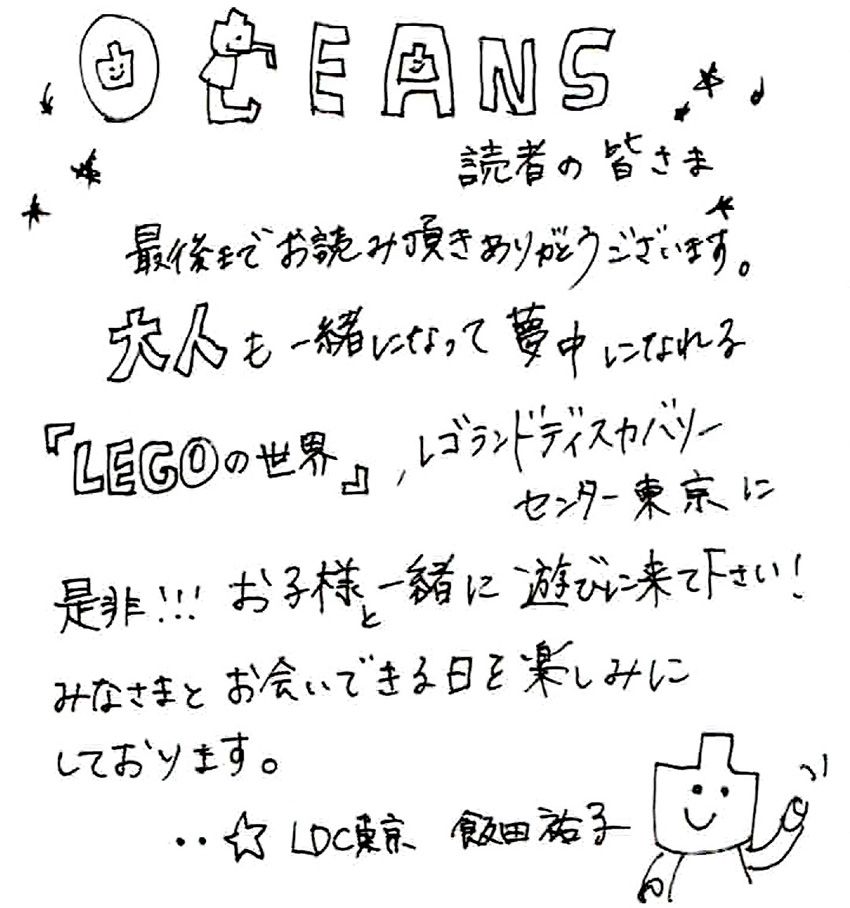 OCEANS
読者の皆さま
最後までお読み頂きありがとうございます。
大人も一緒になって夢中になれる
『LEGOの世界』,レゴランドディスカバリー
センター東京に
是非!!!お子様と一緒に遊びに来て下さい!
みなさまとお会いできる日を楽しみに
しております。
‥☆LDC東京 飯田祐子